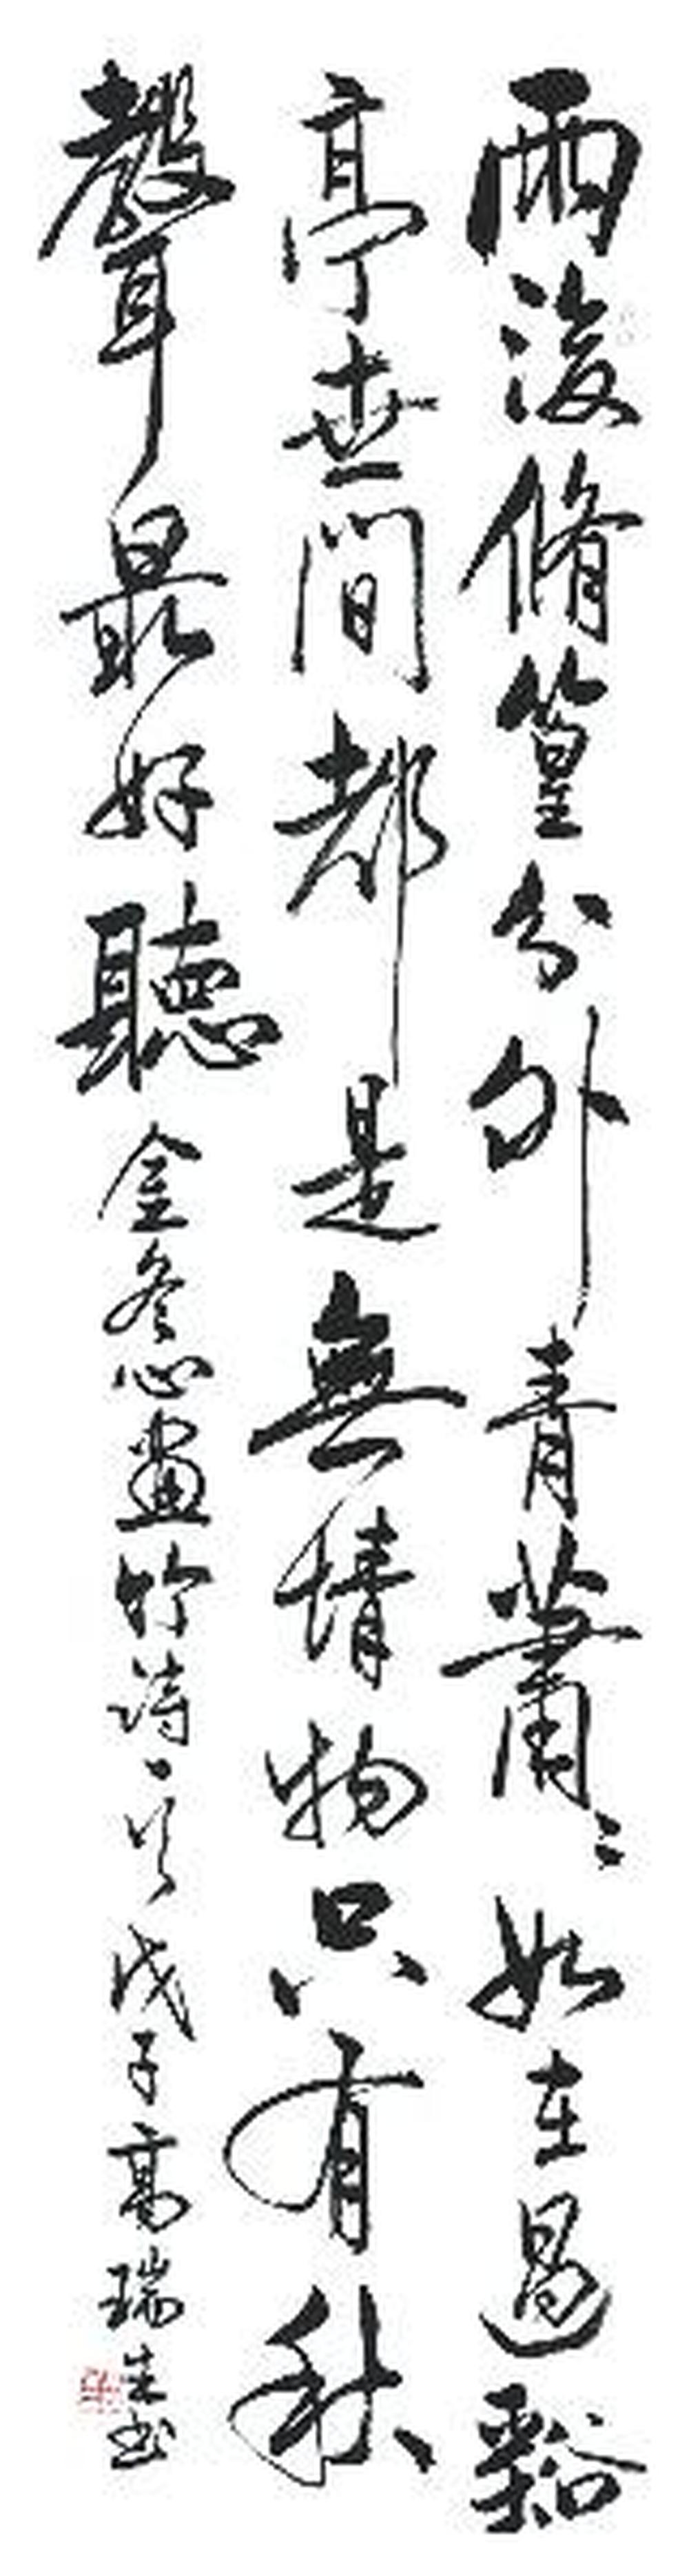 雨後脩篁分外青蕭〻如在過谿
亭世間都是無情物只有秋
聲最好聽 金冬心畫竹詩一首 戊子高瑞生书